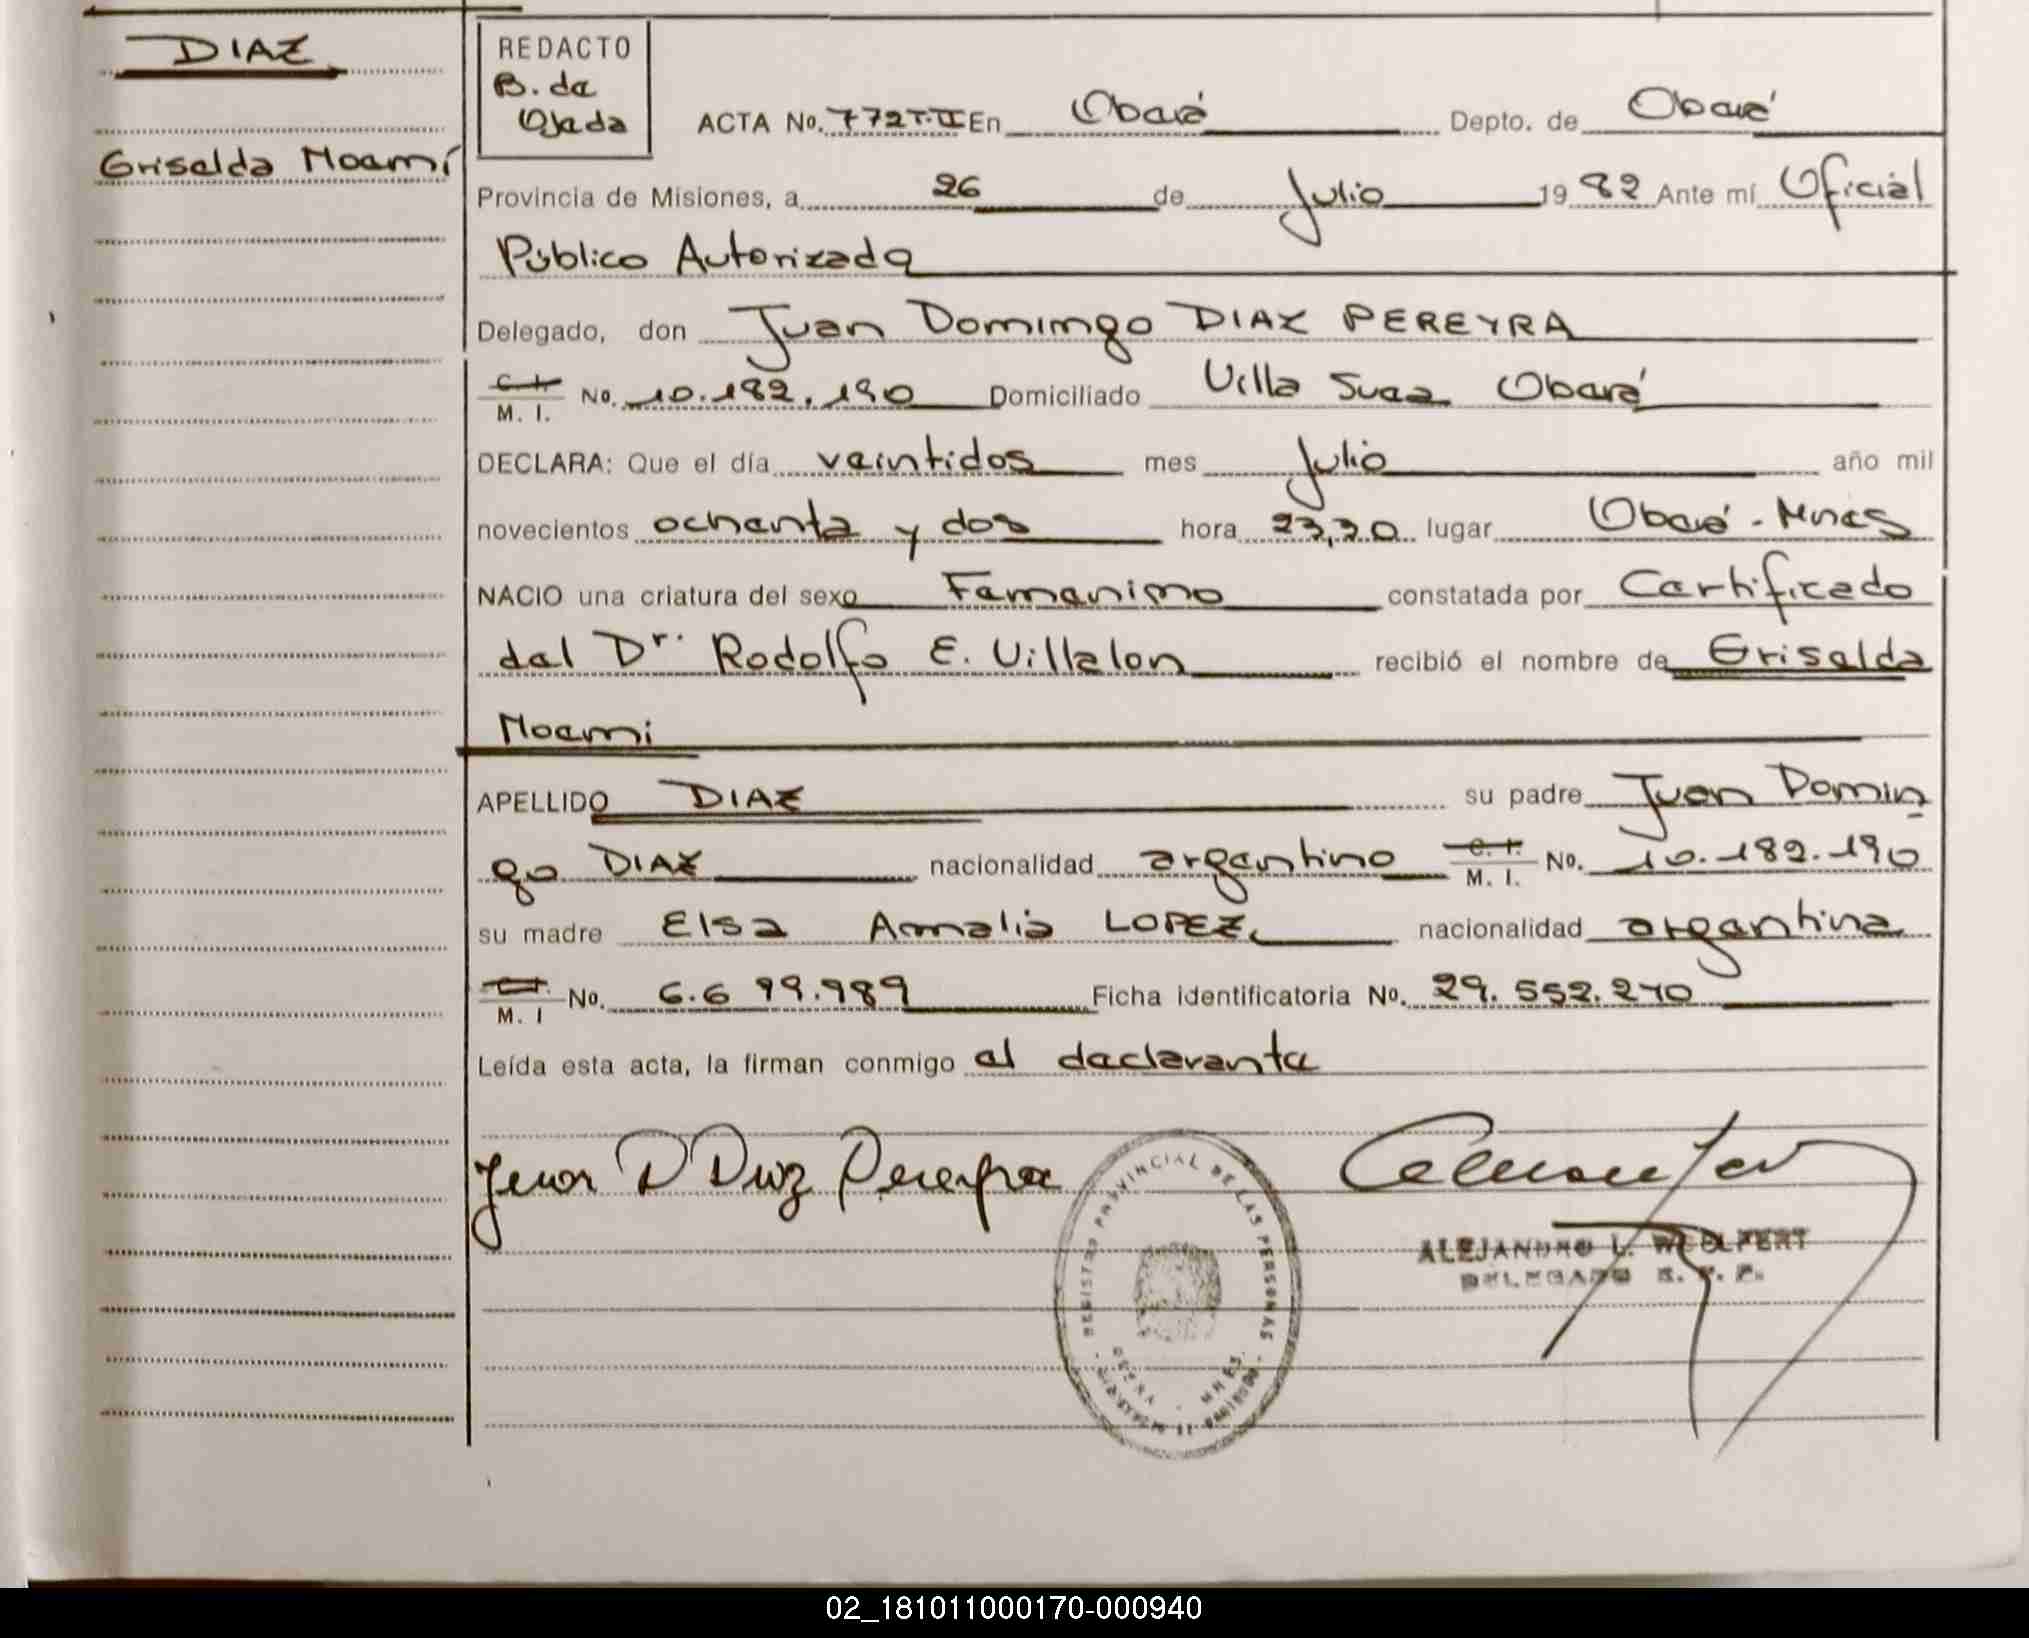 DIAZ
Griselda Noamí
REDACTO
B. de
Ojeda
ACTA No. 772 T.II En Oberá Depto. de Oberá
Provincia de Misiones, a 26 de Julio 19 82 Ante mí Oficial
Público Autorizada
Delegado, don Juan Domingo DIAZ PEREYRA
C. I. M. I. No. 10.182.190 Domiciliado Villa Svea Oberá
DECLARA: Que el día veintidos mes Julio año mil
novecientos ochenta y dos hora 23,30 lugar Oberá - Mnes
NACIO una criatura del sexo Femenino constatada por Certificado
del Dr. Rodolfo E. Villalon recibió el nombre de Griselda
Noemi
APELLIDO DIAZ su padre Juan Domin
go DIAZ nacionalidad argentino C. I. M. I. No. 10.182.190
su madre Elsa Amalia LOPEZ nacionalidad argentina
C. I. M. I No. 6.699.989 Ficha identificatoria No. 29.552.270
Leída esta acta, la firman conmigo el declarante
Juan D Diaz Pereyra
REGISTRO PROVINCIAL DE LAS PERSONAS
OBERA - MNES.
ALEJANDRO L. WOLFERT
DELEGADO R. P. P.
02_181011000170-000940